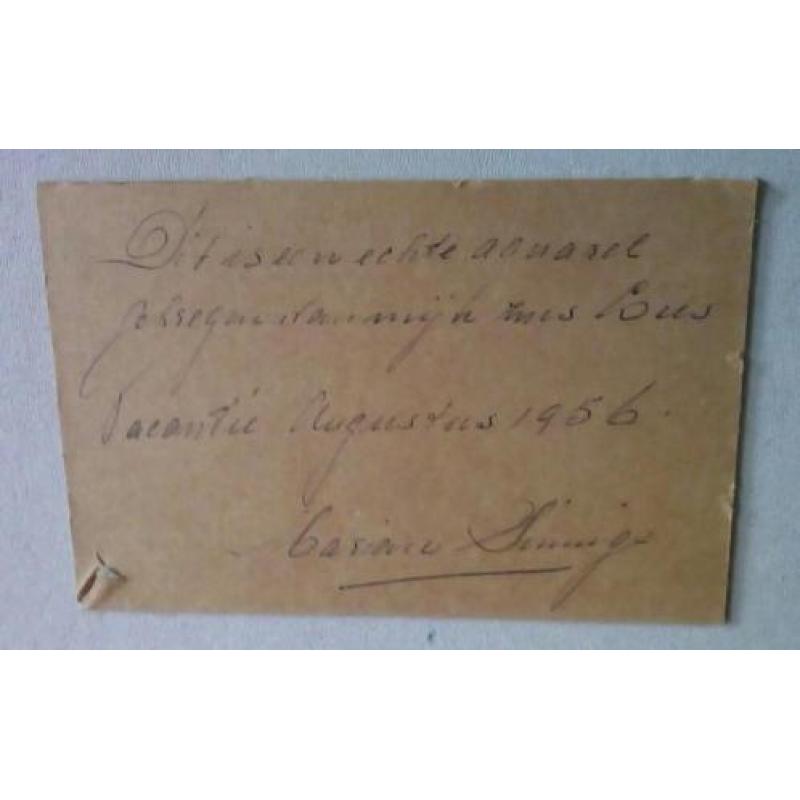 Dit is een echte aquarel
gekregen van mijn Cees
Vacantie Augustus 1956.